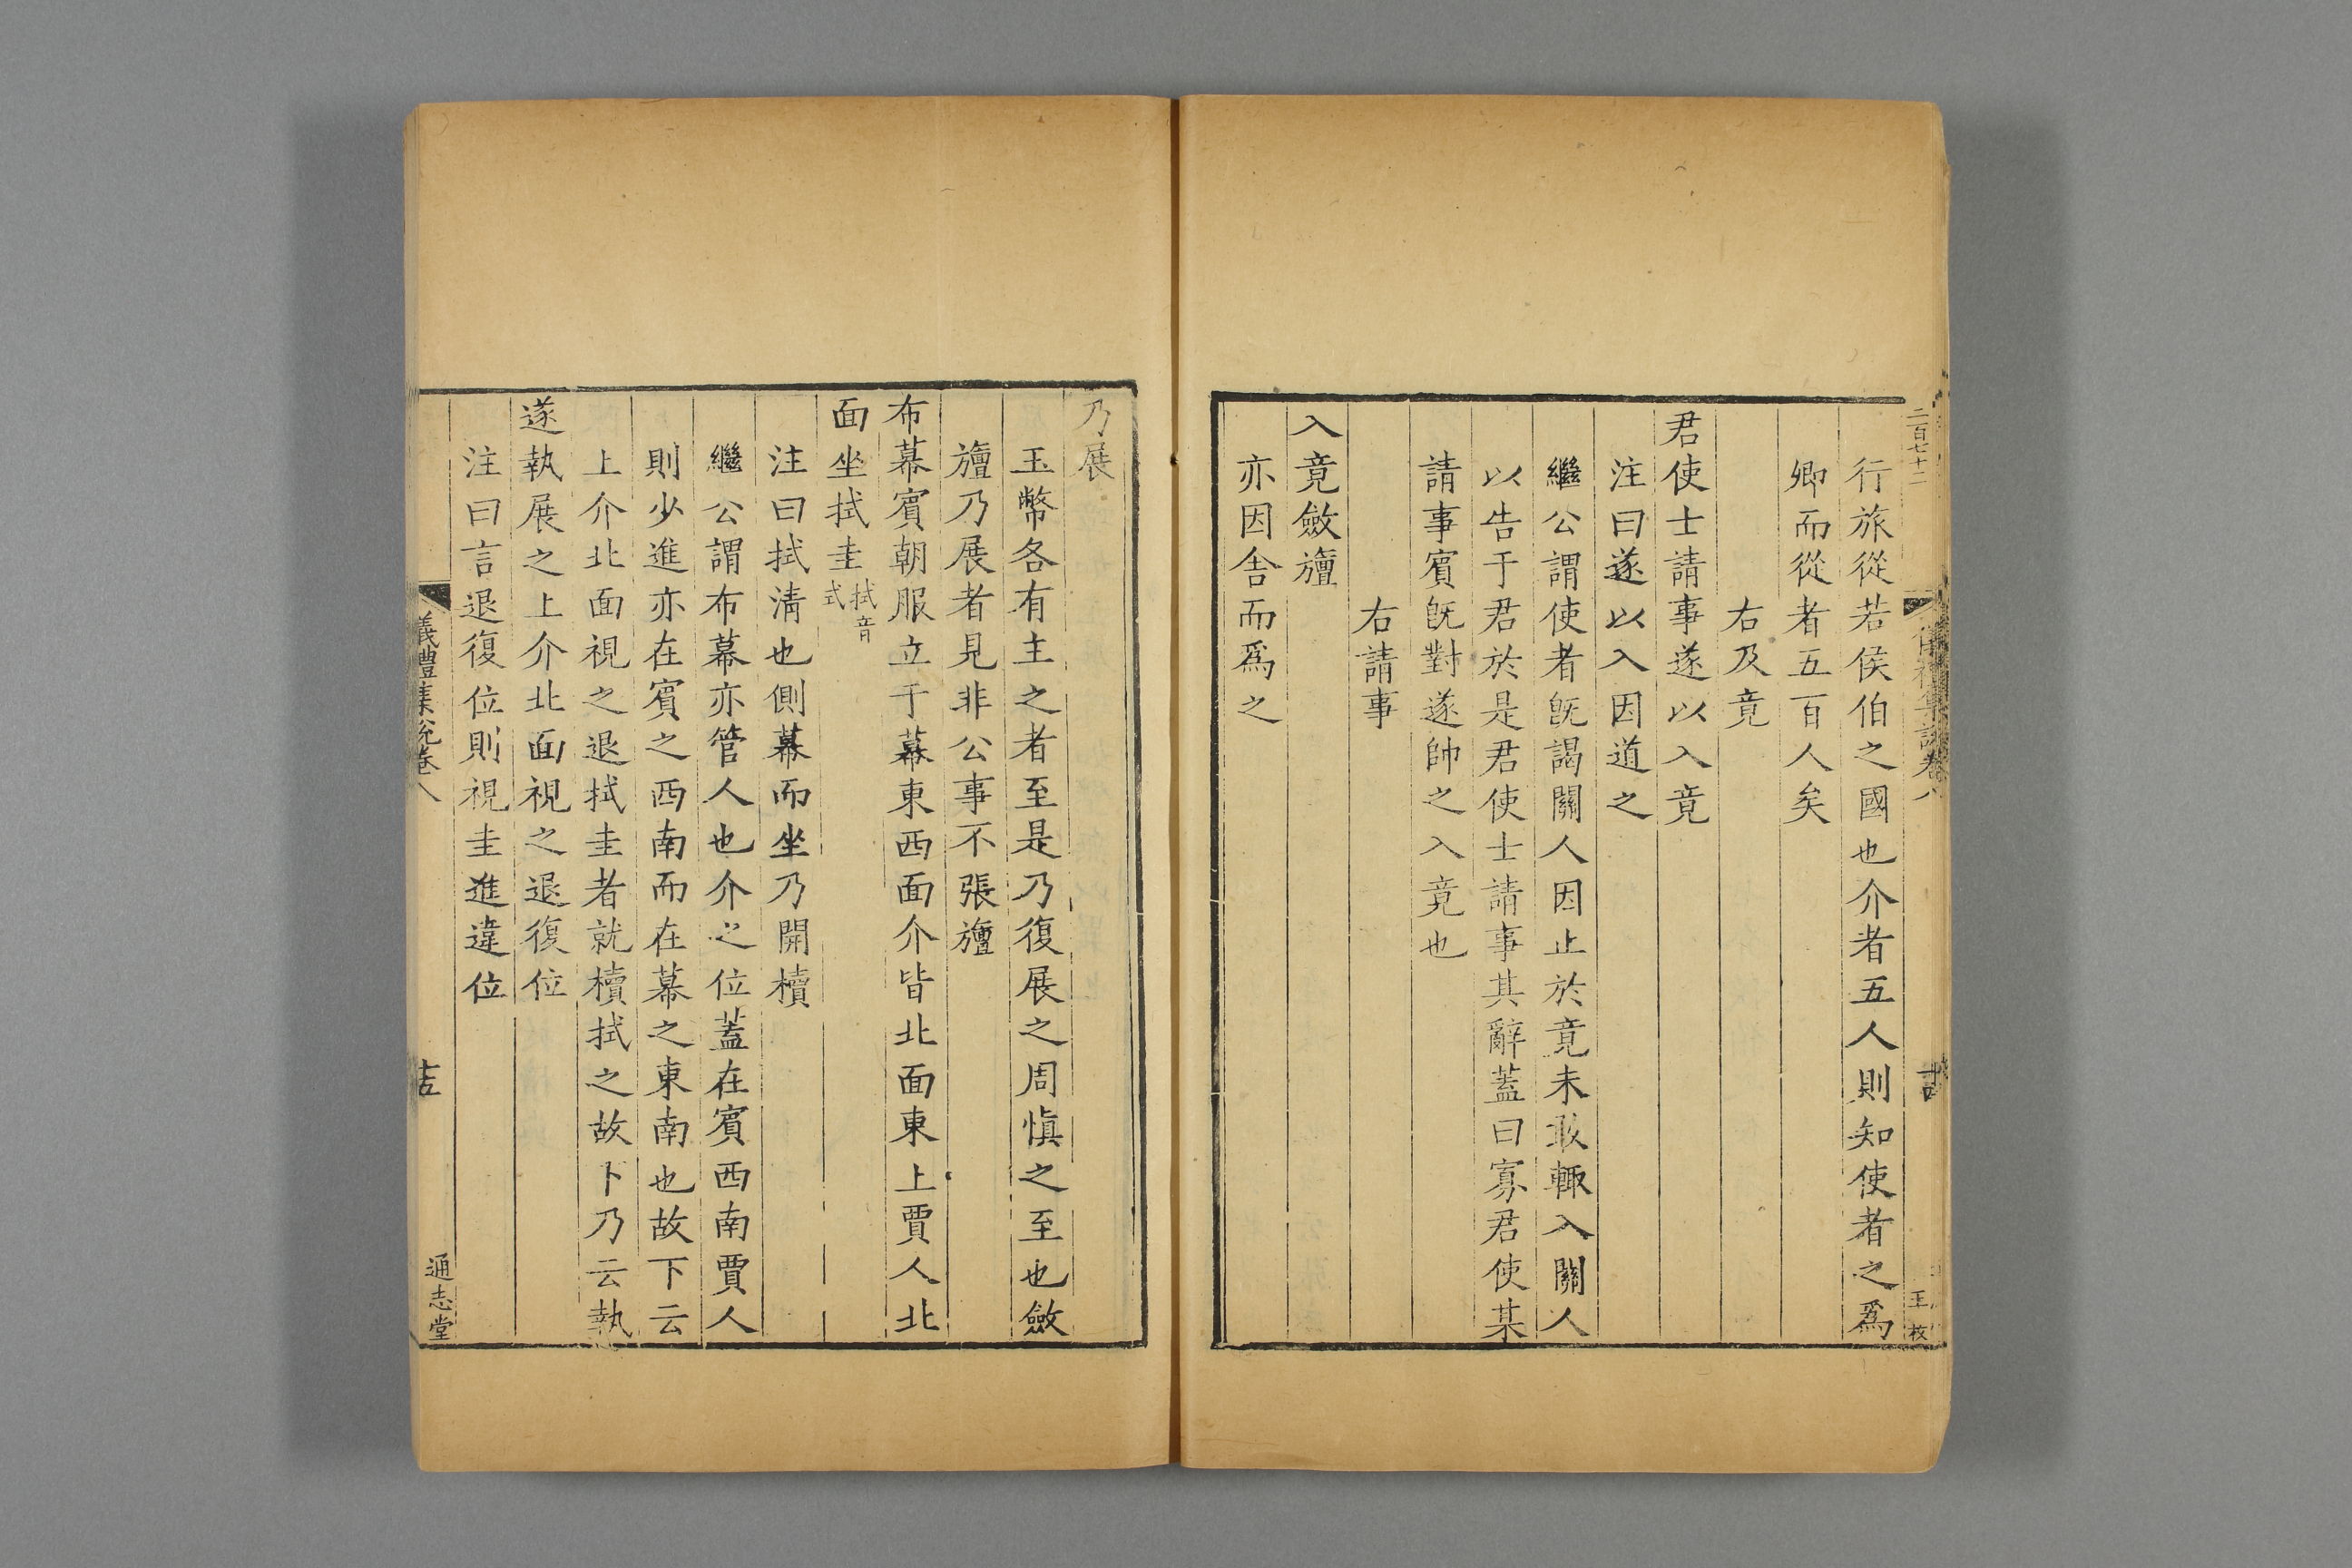 二百七十二
儀禮集說卷八
十四
行旅從若侯伯之國也介者五人則知使者之爲
卿而從者五百人矣
右及竟
君使士請事遂以入竟
注曰遂以入因道之
繼公謂使者旣謁關人因止於竟未敢輙入關人
以告于君於是君使士請事其辭蓋曰寡君使某
請事賓旣對遂帥之入竟也
右請事
入竟斂旜
亦因舍而爲之
乃展
玉幣各有主之者至是乃復展之周愼之至也斂
旜乃展者見非公事不張旜
布幕賓朝服立于幕東西面介皆北面東上賈人北
面坐拭圭拭音式
注曰拭淸也側幕而坐乃開櫝
繼公謂布幕亦管人也介之位蓋在賓西南賈人
則少進亦在賓之西南而在幕之東南也故下云
上介北面視之退拭圭者就櫝拭之故卜乃云執
遂執展之上介北面視之退復位
注曰言退復位則視圭進違位
儀禮集說卷八
十五
通志堂